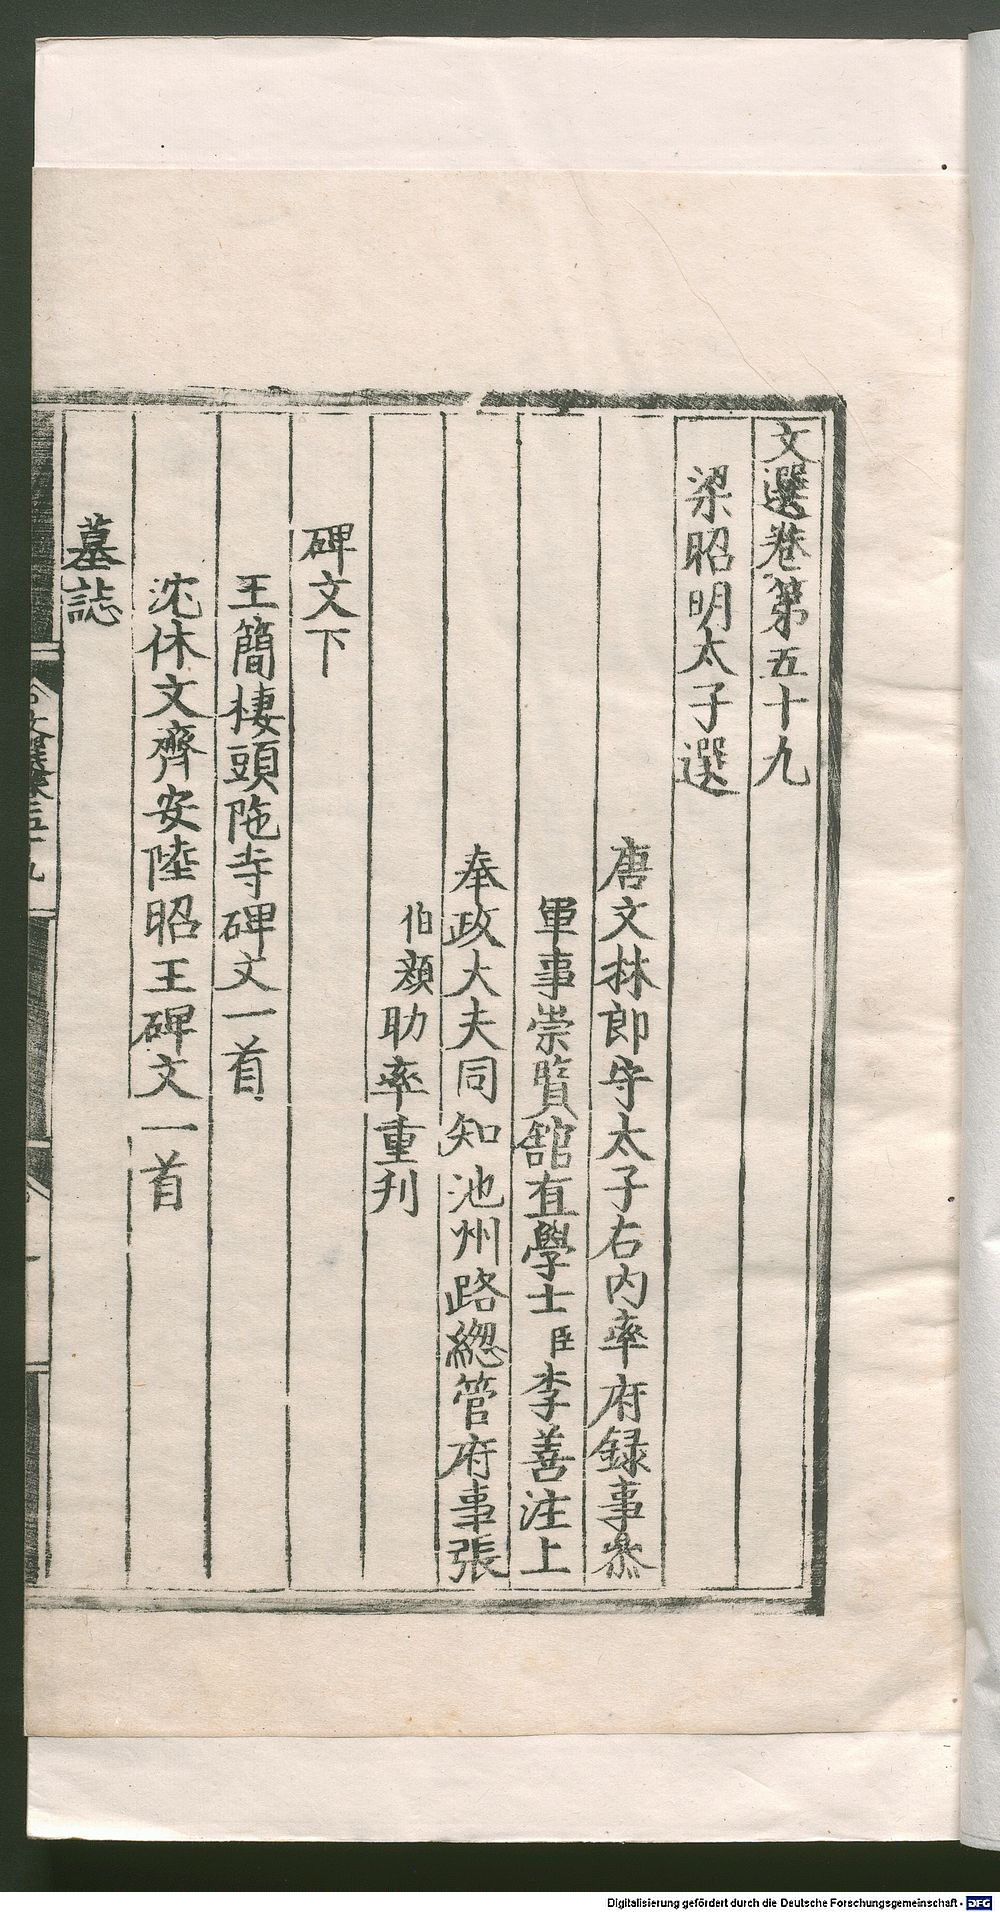 文選卷第五十九
梁昭明太子選
唐文林郎守太子右内率府録事叅
軍事崇賢舘直學士臣李善注上
奉政大夫同知池州路緫管府事張
伯顔助率重刋
碑文下
王簡棲頭陁寺碑文一首
沈休文齊安陸昭王碑文一首
墓誌
Digitalisierung gefördert durch die Deutsche Forschungsgemeinschaft - DFG